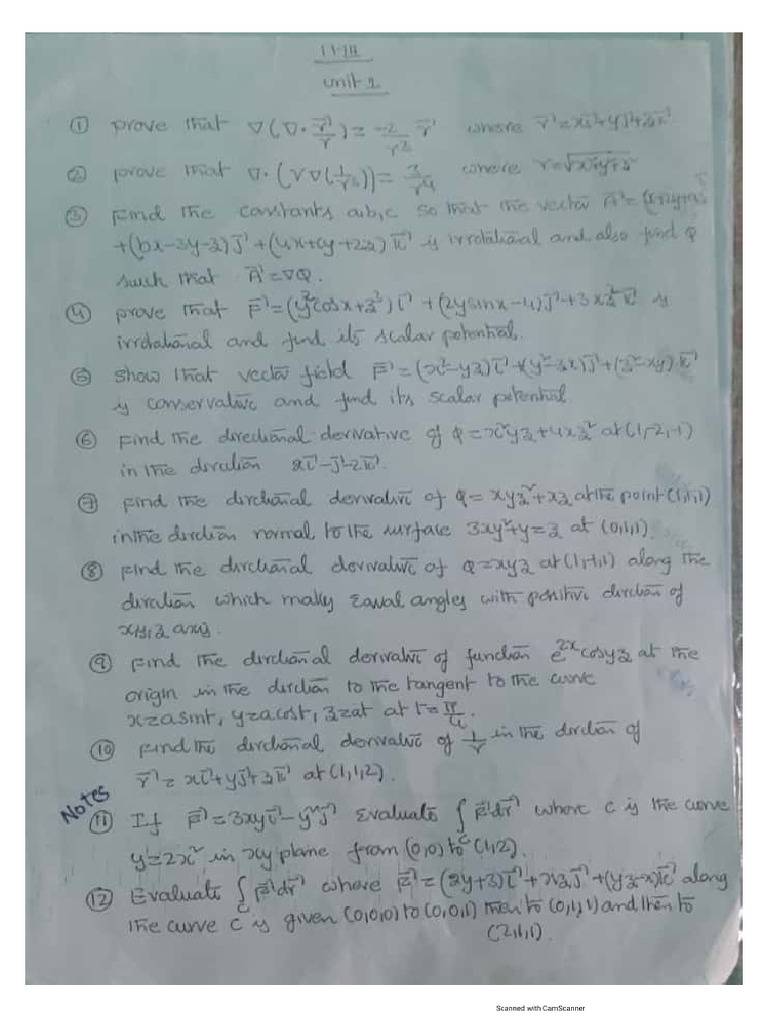 M-II
Unit 1
① prove that ∇(∇·r̄/r) = -2/r³ r̄ where r̄=xī+yj̄+zk̄
② prove that ∇·(r∇(1/r³)) = 3/r⁴ where r=√x²+y²+z²
③ Find the constants a,b,c so that the vector Ā=(x+2y+az)ī
+(bx-3y-z)j̄+(4x+cy+2z)k̄ is irrotational and also find φ
such that Ā=∇φ.
④ prove that F̄=(y²cosx+z³)ī+(2ysinx-4)j̄+3xz²k̄ is
irrotational and find its scalar potential.
⑤ Show that vector field F̄=(x²-yz)ī+(y²-zx)j̄+(z²-xy)k̄
is conservative and find its scalar potential.
⑥ Find the directional derivative of φ=x²yz+4xz² at (1,-2,-1)
in the direction 2ī-j̄-2k̄.
⑦ Find the dirctional derivative of φ=xyz²+xz at the point (1,1,1)
in the dirction normal to the surface 3xy²+y=z at (0,1,1).
⑧ Find the dirctional derivative of φ=xyz at (1,-1,1) along the
direction which makes Equal angles with positive dirction of
x,y,z axis.
⑨ Find the dirctional derivative of function e^2x cosyz at the
origin in the dirction to the tangent to the curve
x=a sint, y=a cost, z=at at t=π/4.
⑩ Find the dirctional derivative of 1/r in the dirction of
r̄=xī+yj̄+zk̄ at (1,1,2).
Notes
⑪ If F̄=3xyī-y²j̄ Evaluate ∫c F̄dr̄ where c is the curve
y=2x² in xy plane from (0,0) to (1,2).
⑫ Evaluate ∫c F̄dr̄ where F̄=(2y+3)ī+xzj̄+(yz-x)k̄ along
the curve c is given (0,0,0) to (0,0,1) then to (0,1,1) and then to
(2,1,1).
Scanned with CamScanner